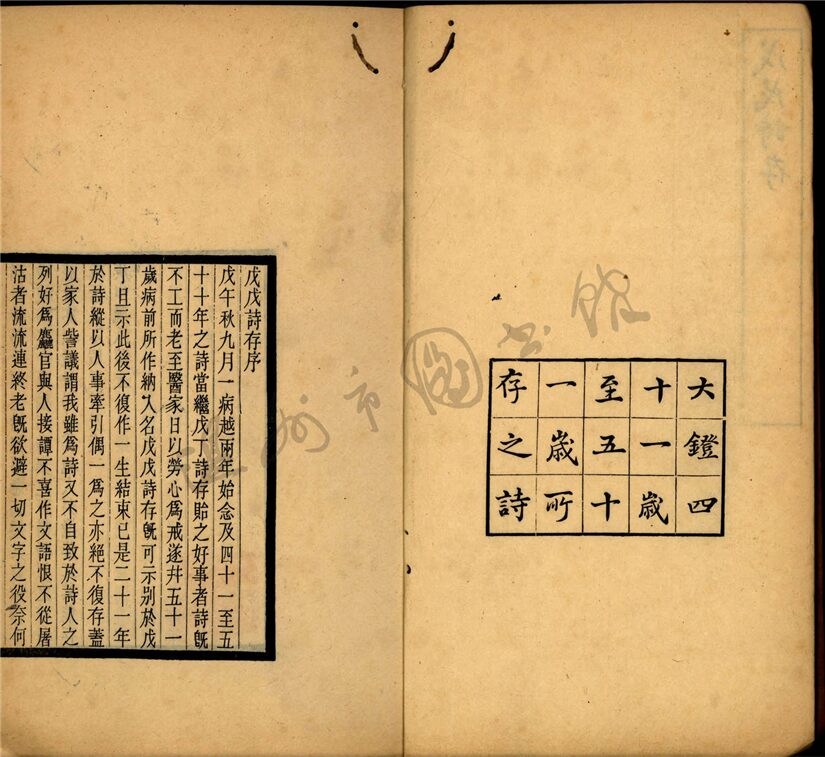 戊戌詩存
大鐙四
十一歲
至五十
一歲所
存之詩
溫州市圖書館
戊戌詩存序
戊午秋九月一病越兩年始念及四十一至五
十十年之詩當繼戊丁詩存貽之好事者詩旣
不工而老至醫家日以勞心爲戒遂幷五十一
歲病前所作納入名戊戌詩存旣可示别於戊
丁且示此後不復作一生結束已是二十一年
於詩縱以人事牽引偶一爲之亦絕不復存蓋
以家人訾議謂我雖爲詩又不自致於詩人之
列好爲麤官與人接譚不喜作文語恨不從屠
沽者流流連終老旣欲避一切文字之役奈何